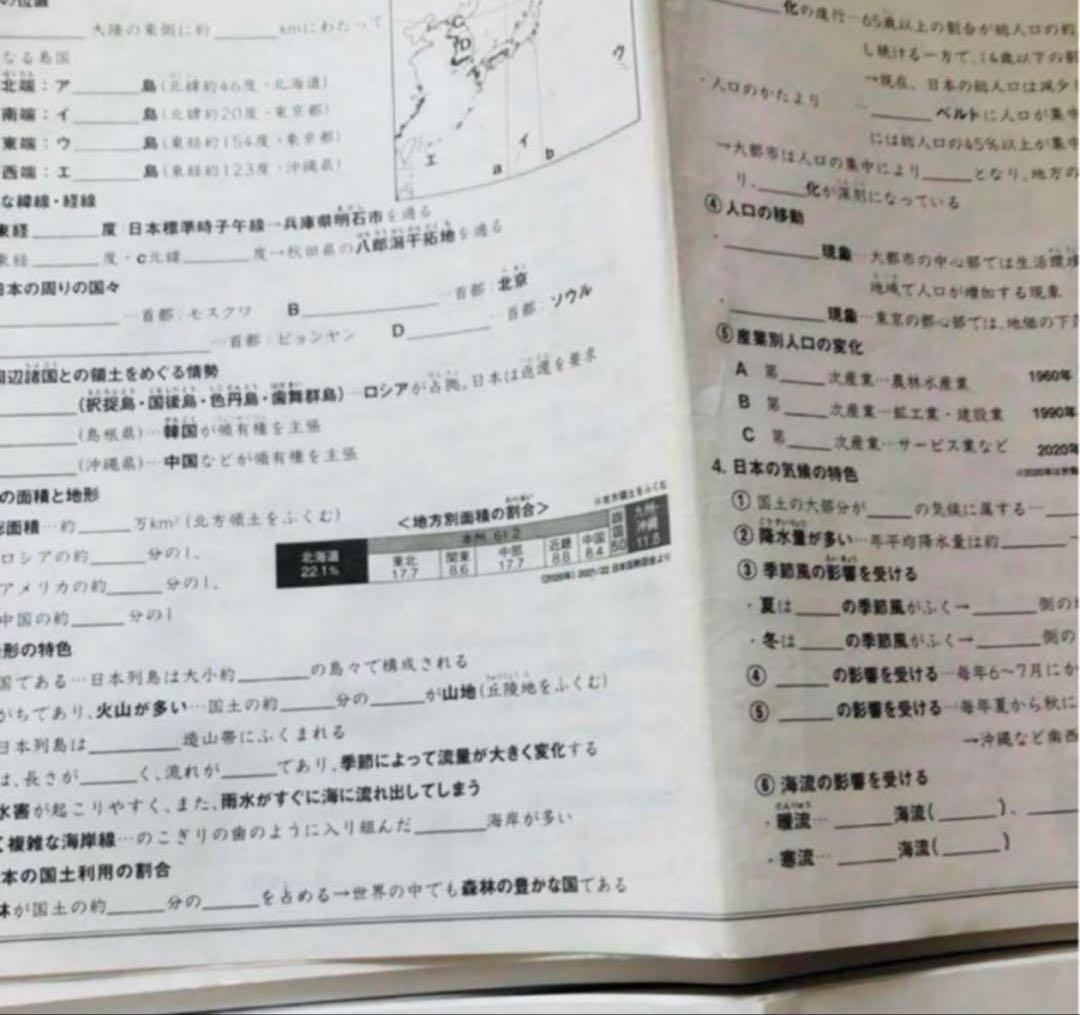 の位置
大陸の東側に約______kmにわたって
なる島国
北端：ア______島(北緯約46度・北海道)
南端：イ______島(北緯約20度・東京都)
東端：ウ______島(東経約154度・東京都)
西端：エ______島(東経約123度・沖縄県)
な緯線・経線
東経______度 日本標準時子午線→兵庫県明石市を通る
東経______度・c北緯______度→秋田県の八郎潟干拓地を通る
日本の周りの国々
______…首都：モスクワ B______…首都：北京
______…首都：ピョンヤン D______…首都：ソウル
周辺諸国との領土をめぐる情勢
______(択捉島・国後島・色丹島・歯舞群島)…ロシアが占拠。日本は返還を要求
______(島根県)…韓国が領有権を主張
______(沖縄県)…中国などが領有権を主張
の面積と地形
総面積…約______万km²(北方領土をふくむ)
ロシアの約______分の1、
アメリカの約______分の1、
中国の約______分の1
C
D
ウ
エ
イ
a
b
<地方別面積の割合>
※北方領土をふくむ
本州 61.2
北海道 22.1%
東北 17.7
関東 8.6
中部 17.7
近畿 8.8
中国 8.4
四国 5.0
九州 沖縄 11.8
(2020年) 2021/22 日本国勢図会より
地形の特色
国である…日本列島は大小約______の島々で構成される
がちであり、火山が多い…国土の約______分の______が山地(丘陵地をふくむ)
日本列島は______造山帯にふくまれる
は、長さが______く、流れが______であり、季節によって流量が大きく変化する
水害が起こりやすく、また、雨水がすぐに海に流れ出してしまう
く複雑な海岸線…のこぎりの歯のように入り組んだ______海岸が多い
本の国土利用の割合
林が国土の約______分の______を占める→世界の中でも森林の豊かな国である
______化の進行…65歳以上の割合が総人口の約
し続ける一方で、14歳以下の割
→現在、日本の総人口は減少
・人口のかたより
______ベルトに人口が集中
には総人口の45%以上が集中
→大都市は人口の集中により______となり、地方の
り、______化が深刻になっている
④人口の移動
・______現象…大都市の中心部では生活環境
地域で人口が増加する現象
・______現象…東京の都心部では、地価の下
⑤産業別人口の変化
A 第______次産業…農林水産業 1960年
B 第______次産業…鉱工業・建設業 1990年
C 第______次産業…サービス業など 2020年
4. 日本の気候の特色
①国土の大部分が______の気候に属する…
②降水量が多い…年平均降水量は約______
③季節風の影響を受ける
・夏は______の季節風がふく→______側の
・冬は______の季節風がふく→______側の
④______の影響を受ける…毎年6〜7月にか
⑤______の影響を受ける…毎年夏から秋に
→沖縄など南西
⑥海流の影響を受ける
・暖流…______海流(______)、
・寒流…______海流(______)